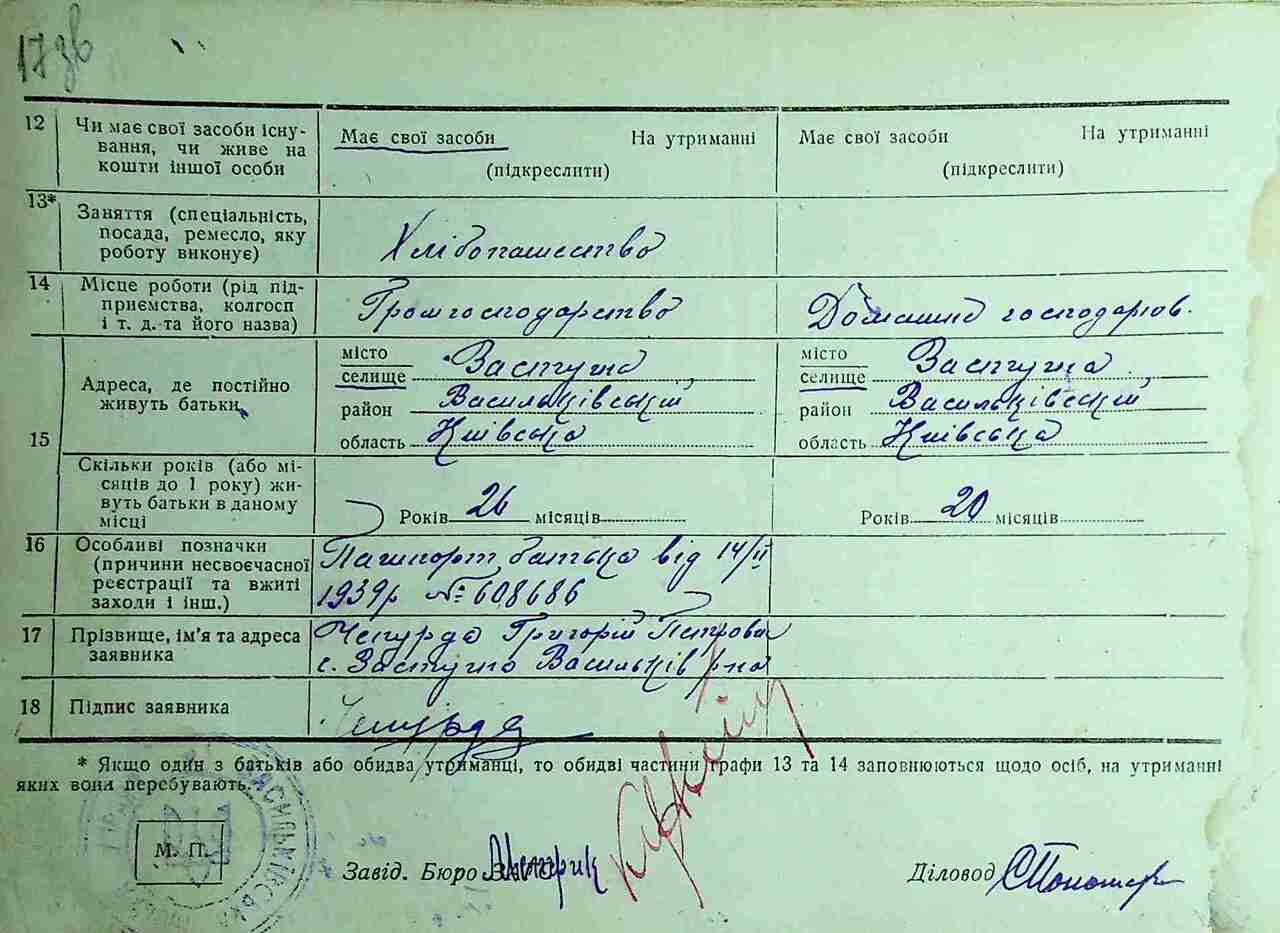 17 зв
12 Чи має свої засоби існу- Має свої засоби На утриманні Має свої засоби На утриманні
вання, чи живе на
кошти іншої особи (підкреслити) (підкреслити)
13* Заняття (спеціальність,
посада, ремесло, яку
роботу виконує) Хлібопашество
14 Місце роботи (рід під-
приємства, колгосп Громгосподарство Домашне господарюв.
і т. д. та його назва)
15 Адреса, де постійно
живуть батьки
місто місто
селище Застугна селище Застугна
район Васильківський район Васильківський
область Київська область Київська
Скільки років (або мі-
сяців до 1 року) жи-
вуть батьки в даному
місці Років 26 місяців Років 20 місяців
16 Особливі позначки Пашпорт батька від 14/ІІ
(причини несвоєчасної
реєстрації та вжиті 1939р № 608686
заходи і інш.)
17 Прізвище, ім'я та адреса Чепурда Григорій Петрович
заявника с. Застугна Васильків р-на
18 Підпис заявника Чепурда
* Якщо один з батьків або обидва утриманці, то обидві частини графи 13 та 14 заповнюються щодо осіб, на утриманні
яких вони перебувають.
М. П.
Завід. Бюро ЗАГС Діловод